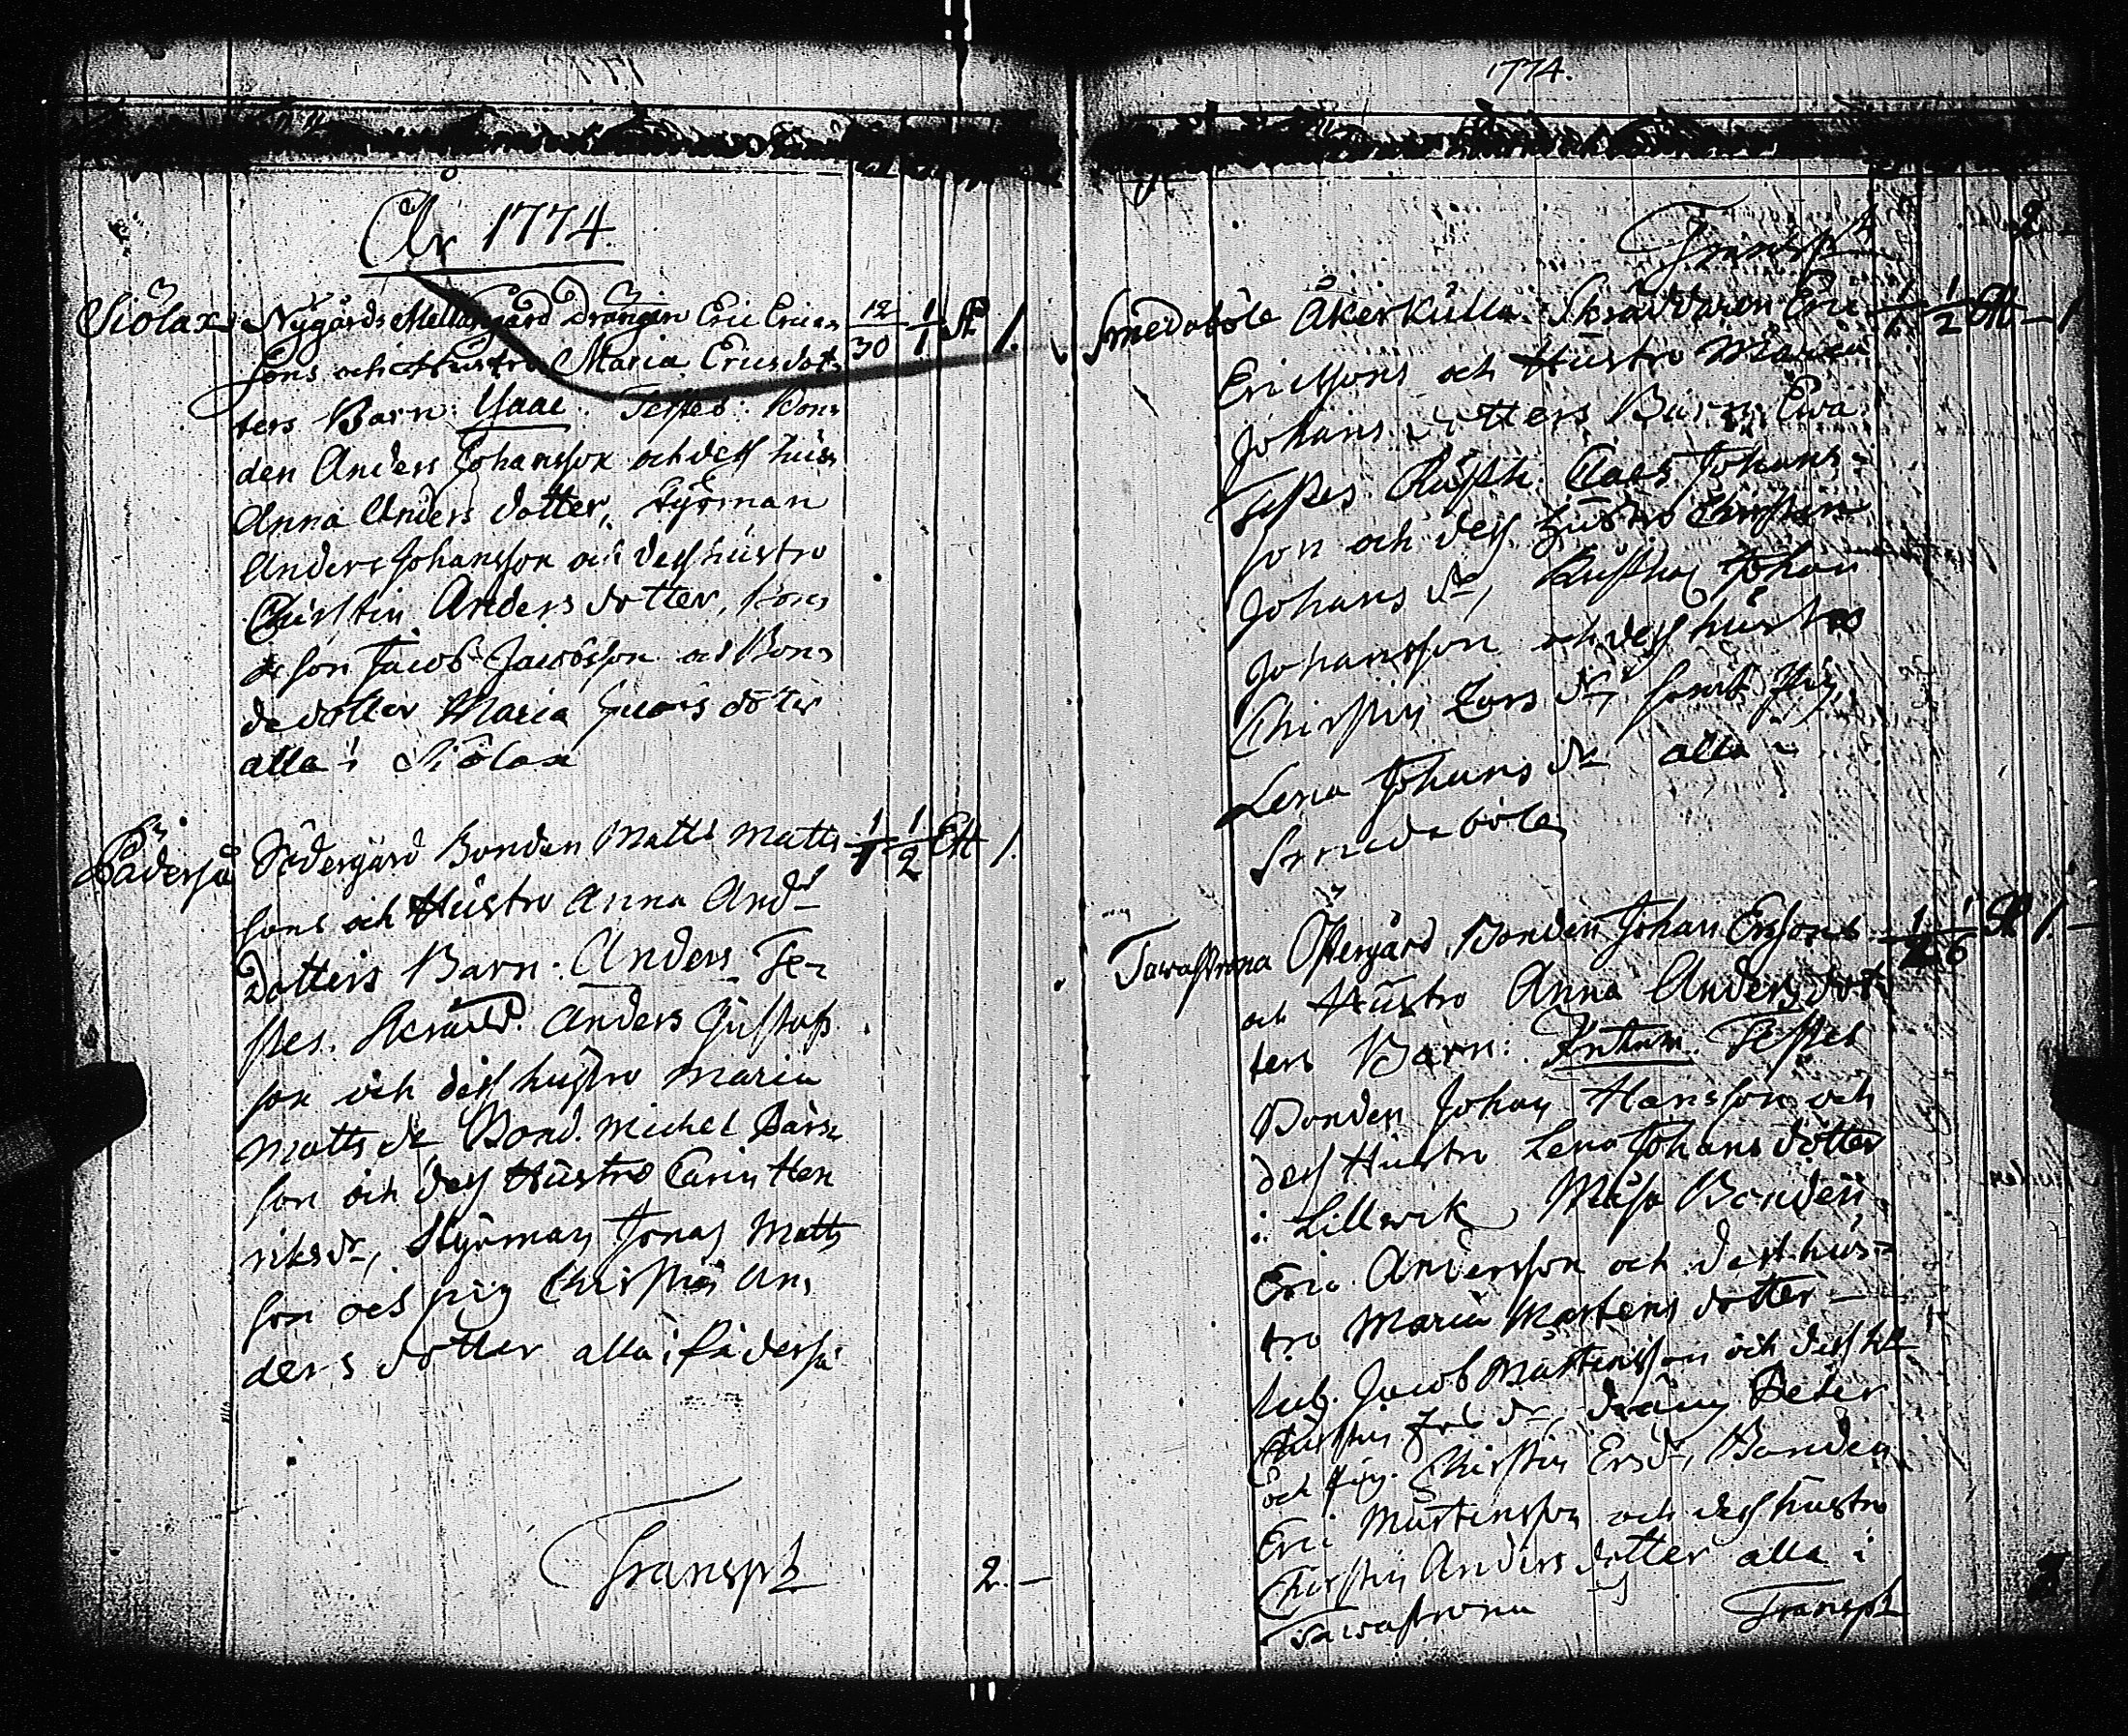 År 1774.
Siölax Nygårds Mellangård Drängen Eric Erics 12/30 1/1 St 1.
sons och Hustru Maria Ericsdot
ters Barn: Isaac. Testes: Bon
den Anders Johansson och dess hus
Anna Anders dotter, Styrman
Anders Johansson och dess hustro
Christin Anders dotter, Bon
de son Jacob Jacobsson och Bon
de dotter Maria dotter
alla i Siölax
Pädersså Södergård Bonden Matts Matts 1/1 1/2 Ett 1.
sons och Hustro Anna And
dotters Barn. Anders. Te
stes. Anders Gustafs
son och dess hustro Maria
Matts dr Bond. Michel
son och dess Hustro Carin Hen
riksdr, Styrman Jonas Matts
son och pig Christin An
ders dotter alla i Pädersså
Transpt 2.—
1774.
Transpt 2
Smedaböle Åkerkulla Skräddaren Eric 1/1 1/2 Ett — 1
Ericssons och Hustro Maria
Johans dotters Barn Ewa
Testes Rusth. Claes Johans
son och dess Hustro Christin
Johans dr, Rusth Johan
Johansson och dess hustro
Christin Lars dr, samt Pig
Lena Johans dr alla
Smedaböle
Tawastrona Östergård Bonden Johan Erssons 1/2 1/6 St 1. —
och Hustro Anna Anders dot
ters Barn: Testes
Bonden Johan Hansson och
dess Hustro Lena Johans dotter
i Lillwik, Bonden
Eric Andersson och dess hus
tro Maria Mårtens dotter —
Jacob Mårtensson och dess h
Christin dr, dräng Peter
och pig. Christin Ersdr, Bonden
Eric Mårtensson och dess hustro
Christin Anders dotter alla i
Tawastrona Transpt